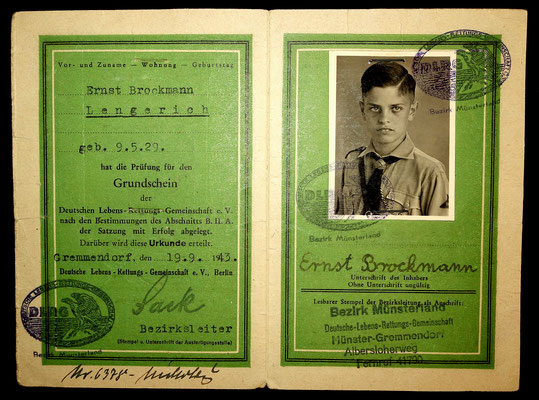 Vor- und Zuname — Wohnung — Geburtstag
Ernst Brockmann
Lengerich
geb. 9.5.29.
hat die Prüfung für den
Grundschein
der
Deutschen Lebens-Rettungs-Gemeinschaft e. V.
nach den Bestimmungen des Abschnitts B. II. A
der Satzung mit Erfolg abgelegt.
Darüber wird diese Urkunde erteilt.
Gremmendorf, den 19.9. 1943.
Deutsche Lebens-Rettungs-Gemeinschaft e. V., Berlin
Sack
Bezirksleiter
(Stempel u. Unterschrift der Ausfertigungsstelle)
DLRG
Bezirk Münsterland
Nr. 6378
DLRG
Bezirk Münsterland
DLRG
Bezirk Münsterland
Ernst Brockmann
Unterschrift des Inhabers
Ohne Unterschrift ungültig
Lesbarer Stempel der Bezirksleitung als Anschrift:
Bezirk Münsterland
Deutsche-Lebens-Rettungs-Gemeinschaft
Münster-Gremmendorf
Albersloherweg
Fernruf 41790